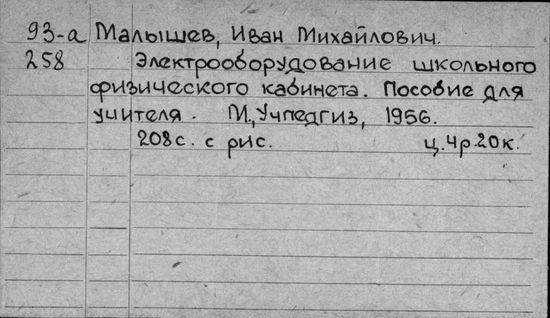 93-а Малышев, Иван Михайлович.
258 Электрооборудование школьного
физического кабинета. Пособие для
учителя. М., Учпедгиз, 1956.
208с. с рис. ц. 4р. 20к.